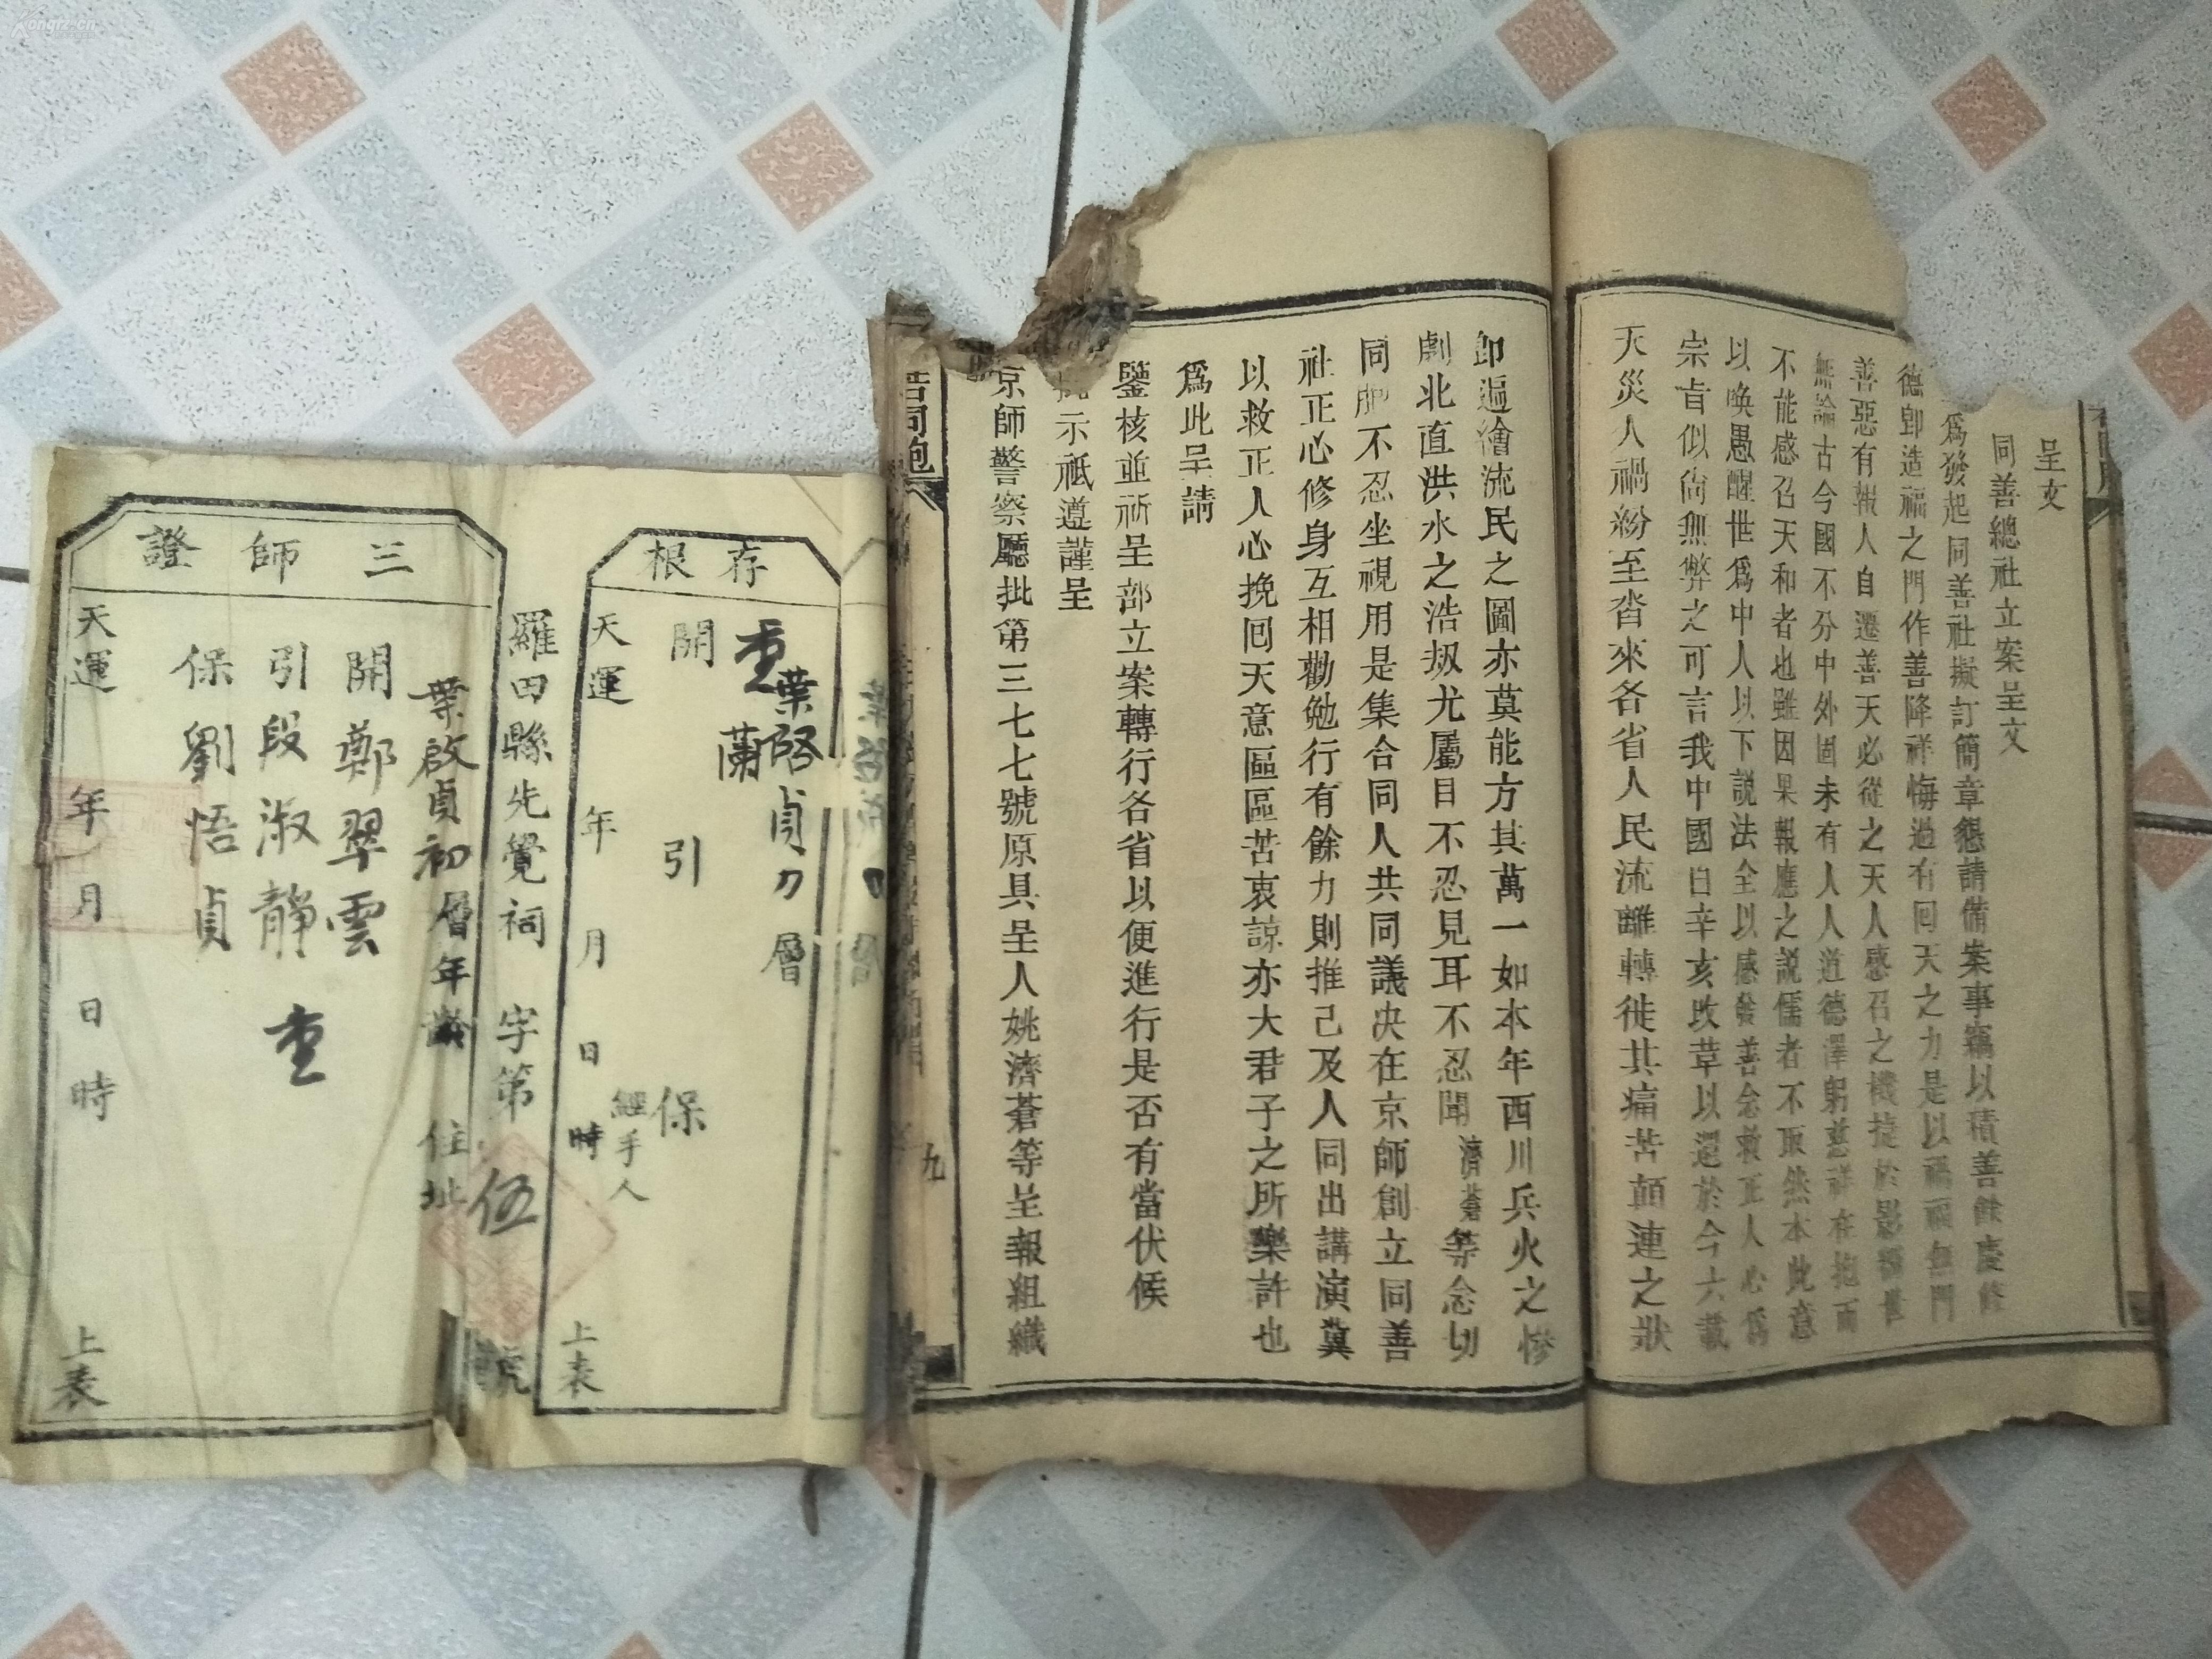 呈文
同善總社立案呈文
爲發起同善社擬訂簡章懇請備案事竊以積善餘慶修
德卽造福之門作善降祥悔過有回天之力是以禍福無門
善惡有報人自遷善天必從之天人感召之機捷於影響世
無論古今國不分中外固未有人人道德澤躬慈祥在抱而
不能感召天和者也雖因果報應之説儒者不取然本此意
以喚愚醒世爲中人以下説法全以感發善念救正人心爲
宗旨似尙無弊之可言我中國自辛亥改革以還於今六載
天災人禍紛至沓來各省人民流離轉徙其痛苦顛連之狀
卽遍繪流民之圖亦莫能方其萬一如本年西川兵火之慘
劇北直洪水之浩刼尤屬目不忍見耳不忍聞濟蒼等念切
同胞不忍坐視用是集合同人共同議决在京師創立同善
社正心修身互相勸勉行有餘力則推己及人同出講演冀
以救正人心挽囘天意區區苦衷諒亦大君子之所樂許也
爲此呈請
鑒核並祈呈部立案轉行各省以便進行是否有當伏候
批示祗遵謹呈
京師警察廳批第三七七號原具呈人姚濟蒼等呈報組織
九
存根
葉啓貞刀層
重蘭
開 引 保
經手人
天運 年 月 日 時 上表
羅田縣先覺祠 字第 伍 號
三師證
葉啟貞初層年齡 住址
開鄭翠雲
引段淑靜 重
保劉悟貞
天運 年 月 日 時 上表